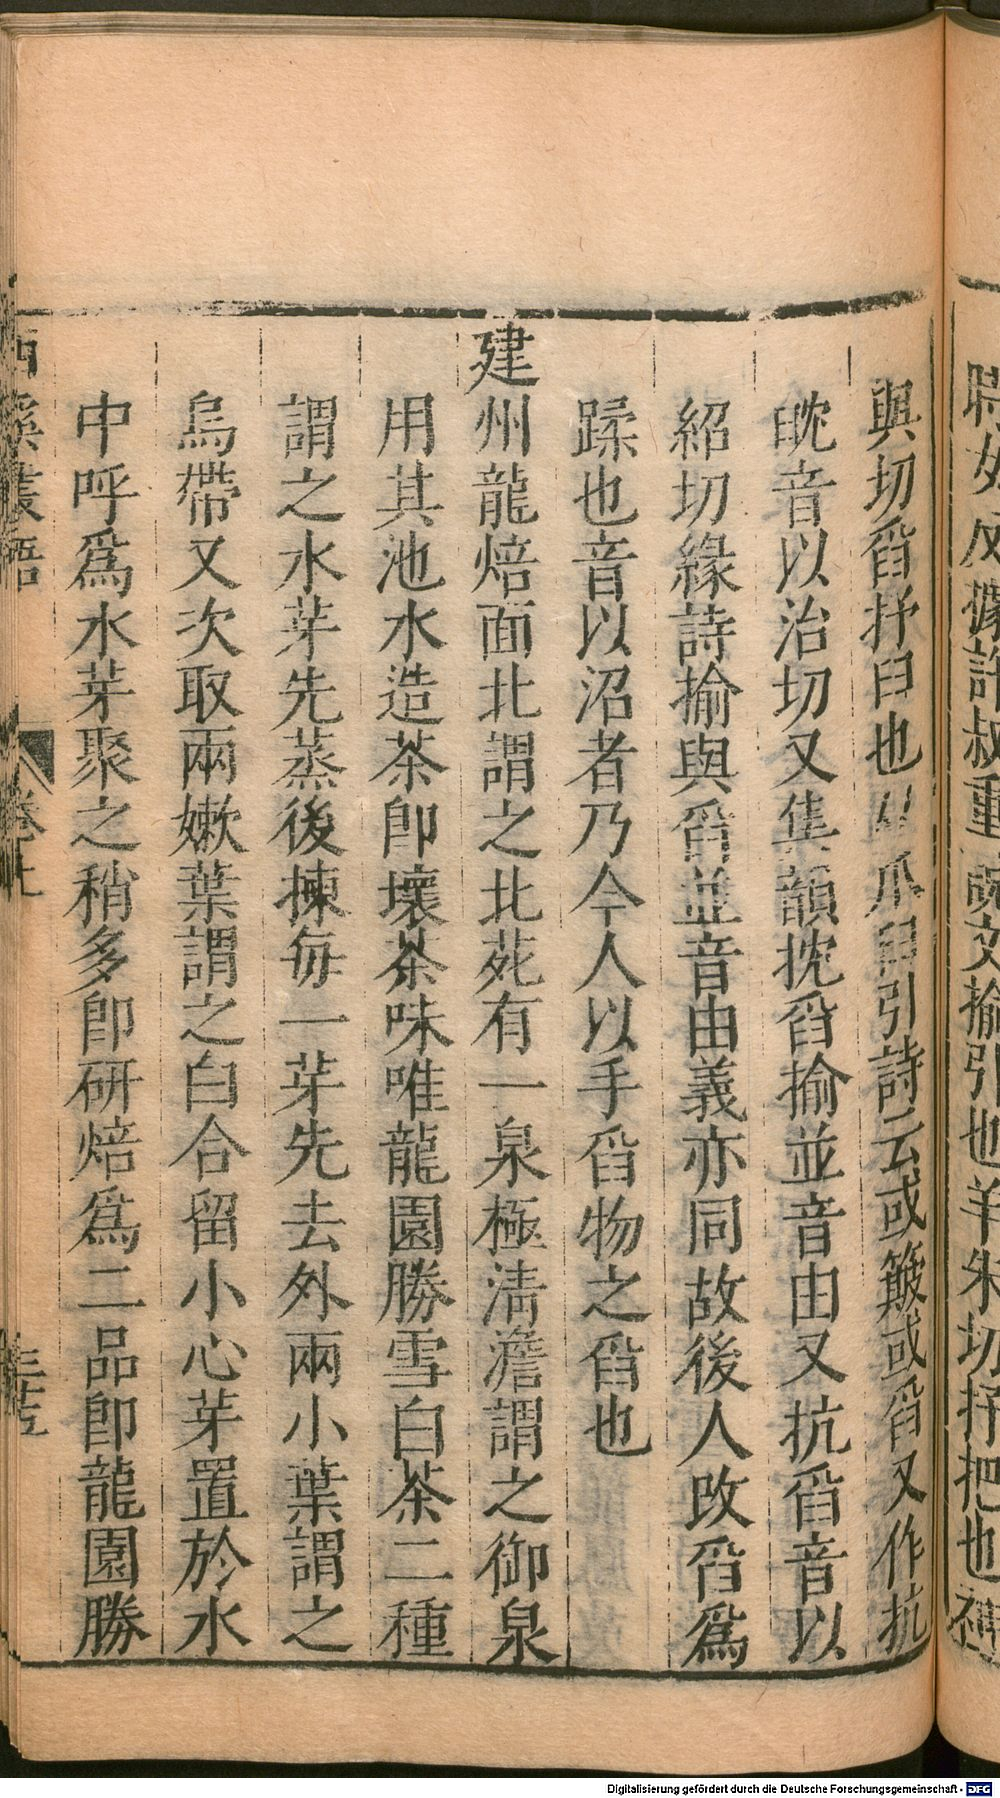 時如反據許叔重說文揄引也羊朱切抒把也
與切舀抒臼也从爪臼引詩云或簸或舀又作抗
㫐音以治切又集韻抭舀揄並音由又抗舀音以
紹切緣詩揄與舀並音由義亦同故後人改舀爲
蹂也音以沼者乃今人以手舀物之舀也
建州龍焙面北謂之北苑有一泉極淸澹謂之御泉
用其池水造茶卽壞茶味唯龍園勝雪白茶二種
謂之水芽先蒸後揀每一芽先去外兩小葉謂之
烏帶又次取兩嫰葉謂之白合留小心芽置於水
中呼爲水芽聚之稍多卽硏焙爲二品卽龍園勝
西溪叢語 卷上 三五
Digitalisierung gefördert durch die Deutsche Forschungsgemeinschaft - DFG